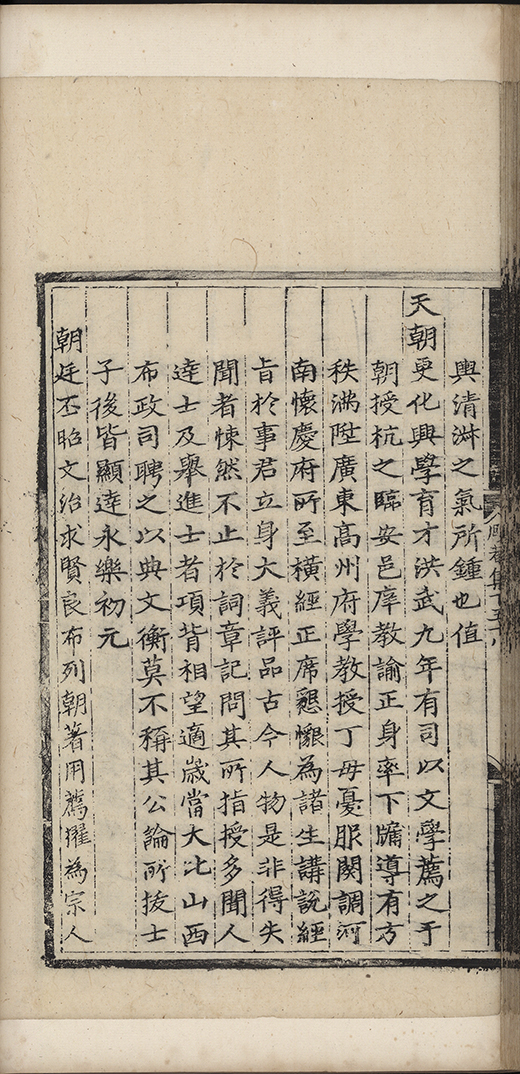 輿清淑之氣所鍾也值
天朝更化興學育才洪武九年有司以文學薦之于
朝授杭之臨安邑庠教諭正身率下牖導有方
秩滿陞廣東高州府學教授丁母憂服闋調河
南懷慶府所至橫經正席懇懇為諸生講說經
旨於事君立身大義評品古今人物是非得失
聞者悚然不止於詞章記問其所指授多聞人
達士及舉進士者項背相望適歲當大比山西
布政司聘之以典文衡莫不稱其公論所拔士
子後皆顯達永樂初元
朝廷丕昭文治求賢良布列朝著用薦擢為宗人